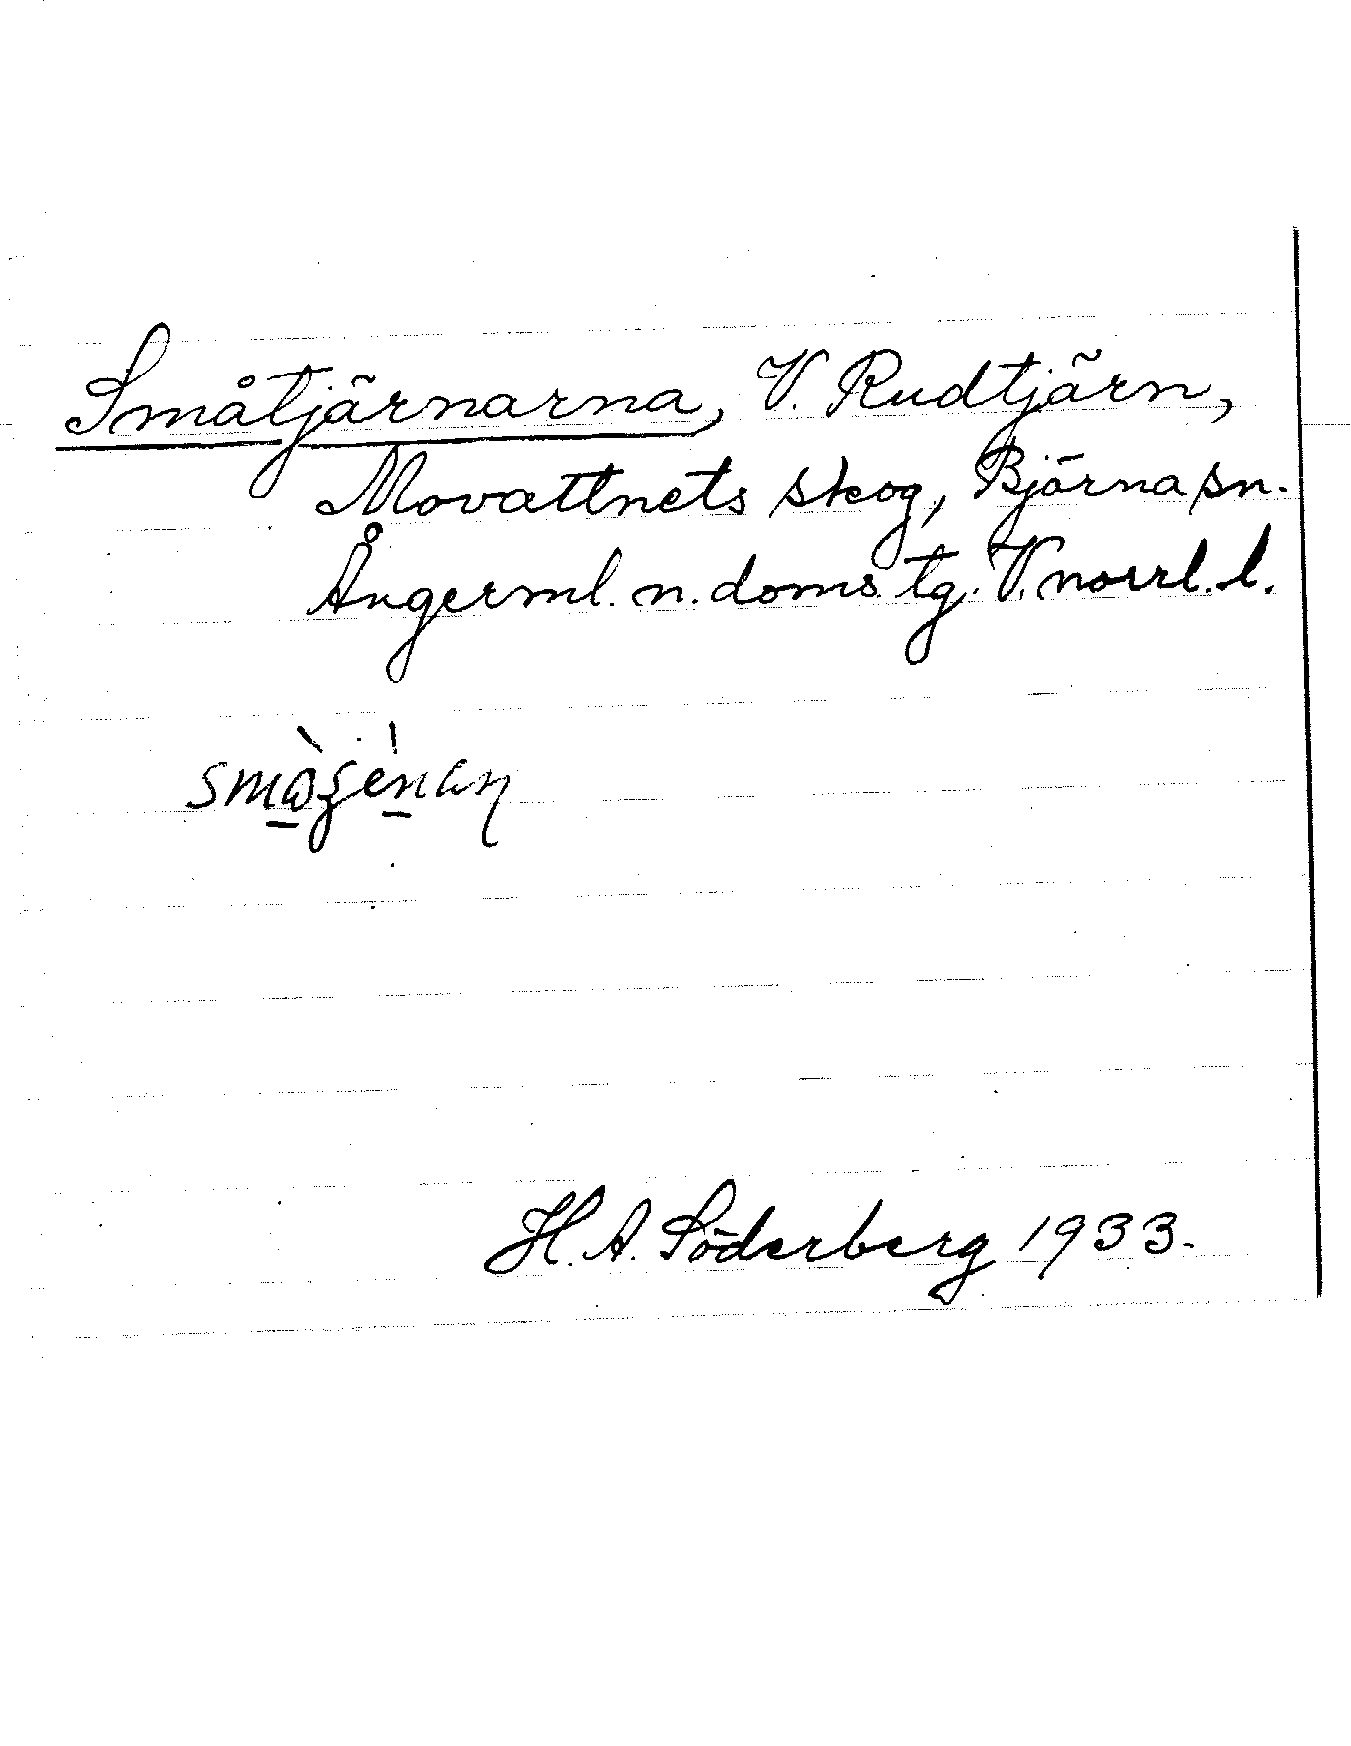 Småtjärnarna, V. Rudtjärn,
Movattnets skog, Björna sn.
Ångerml. n. doms. tg. V.norrl. l.
H. A. Söderberg 1933.